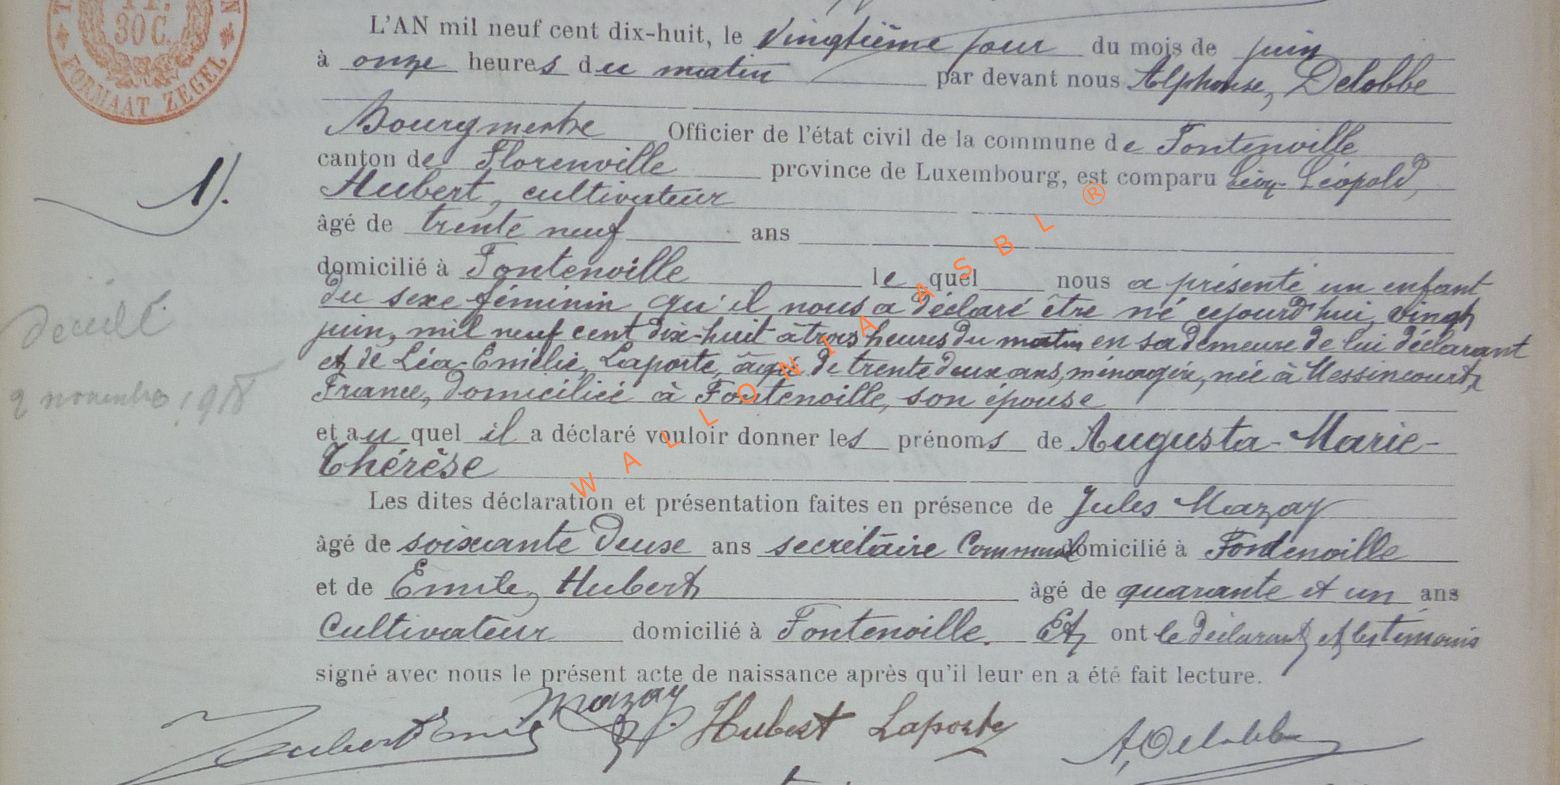 30 C.
FORMAAT ZEGEL
L'AN mil neuf cent dix-huit, le vingtième jour du mois de juin
à onze heures du matin par devant nous Alphonse, Delobbe
Bourgmestre Officier de l'état civil de la commune de Fontenoille
canton de Florenville province de Luxembourg, est comparu Léon-Léopold,
Hubert, cultivateur
1).
âgé de trente neuf ans
domicilié à Fontenoille le quel nous a présenté un enfant
du sexe féminin, qu'il nous a déclaré être né cejourd'hui, vingt
juin, mil neuf cent dix-huit à trois heures du matin en sa demeure de lui déclarant
et de Léa-Emélie, Laporte, âgée de trente deux ans, ménagère, née à Messincourt,
France, domiciliée à Fontenoille, son épouse
décédée
2 novembre 1918
et au quel il a déclaré vouloir donner les prénoms de Augusta-Marie-
Thérèse
Les dites déclaration et présentation faites en présence de Jules Mazay
âgé de soixante deux ans secrétaire Communal domicilié à Fontenoille
et de Emile, Hubert âgé de quarante et un ans
Cultivateur domicilié à Fontenoille. Et ont le déclarant et les témoins
signé avec nous le présent acte de naissance après qu'il leur en a été fait lecture.
Hubert Emile Mazay J. Hubert Laporte A. Delobbe
WALLONIA ASBL ®